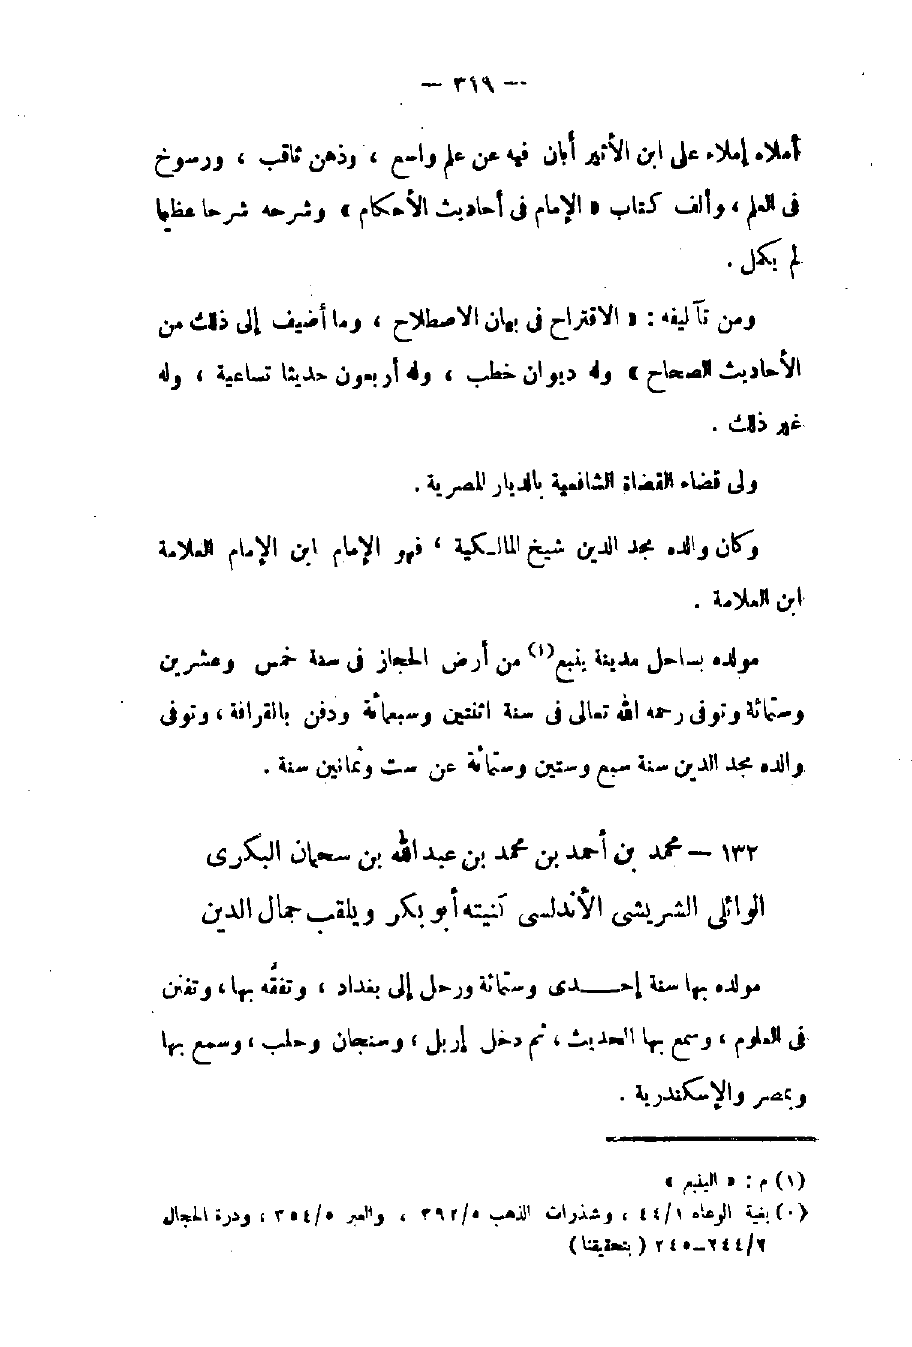 — ٣١٩ —
أملاه إملاء على ابن الأثير أبان فيه عن علم واسع ، وذهن ثاقب ، ورسوخ
فى العلم ، وألف كتاب « الإمام فى أحاديث الأحكام » وشرحه شرحا عظيما
لم يكمل .
ومن تآليفه : « الاقتراح فى بيان الاصطلاح ، وما أضيف إلى ذلك من
الأحاديث الصحاح » وله ديوان خطب ، وله أربعون حديثا تساعية ، وله
غير ذلك .
ولى قضاء القضاة الشافعية بالديار المصرية .
وكان والده مجد الدين شيخ المالكية ، فهو الإمام ابن الإمام العلامة
ابن العلامة .
مولده بساحل مدينة ينبع(١) من أرض الحجاز فى سنة خمس وعشرين
وستمائة وتوفى رحمه الله تعالى فى سنة اثنتين وسبعمائة ودفن بالقرافة ، وتوفى
والده مجد الدين سنة سبع وستين وستمائة عن ست وثمانين سنة .
١٣٢ — محمد بن أحمد بن محمد بن عبد الله بن سحمان البكرى
الوائلى الشريشى الأندلسى كنيته أبو بكر ويلقب جمال الدين
مولده بها سنة إحــدى وستمائة ورحل إلى بغداد ، وتفقَّه بها ، وتفنن
فى العلوم ، وسمع بها الحديث ، ثم دخل إربل ، وسنجان وحلب ، وسمع بها
وبمصر والإسكندرية .
(١) م : « الينبع »
(٠) بغية الوعاه ٤٤/١ ، وشذرات الذهب ٣٩٢/٥ ، والعبر ٣٥٤/٥ ، ودرة الحجال
٢٤٤/٢–٢٤٥ ( بتحقيقنا )